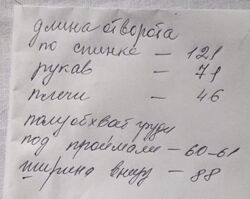 длина отворота
по спинке – 121
рукав – 71
плечи – 46
полуобхват груди
под проймами – 60-61
ширина внизу – 88